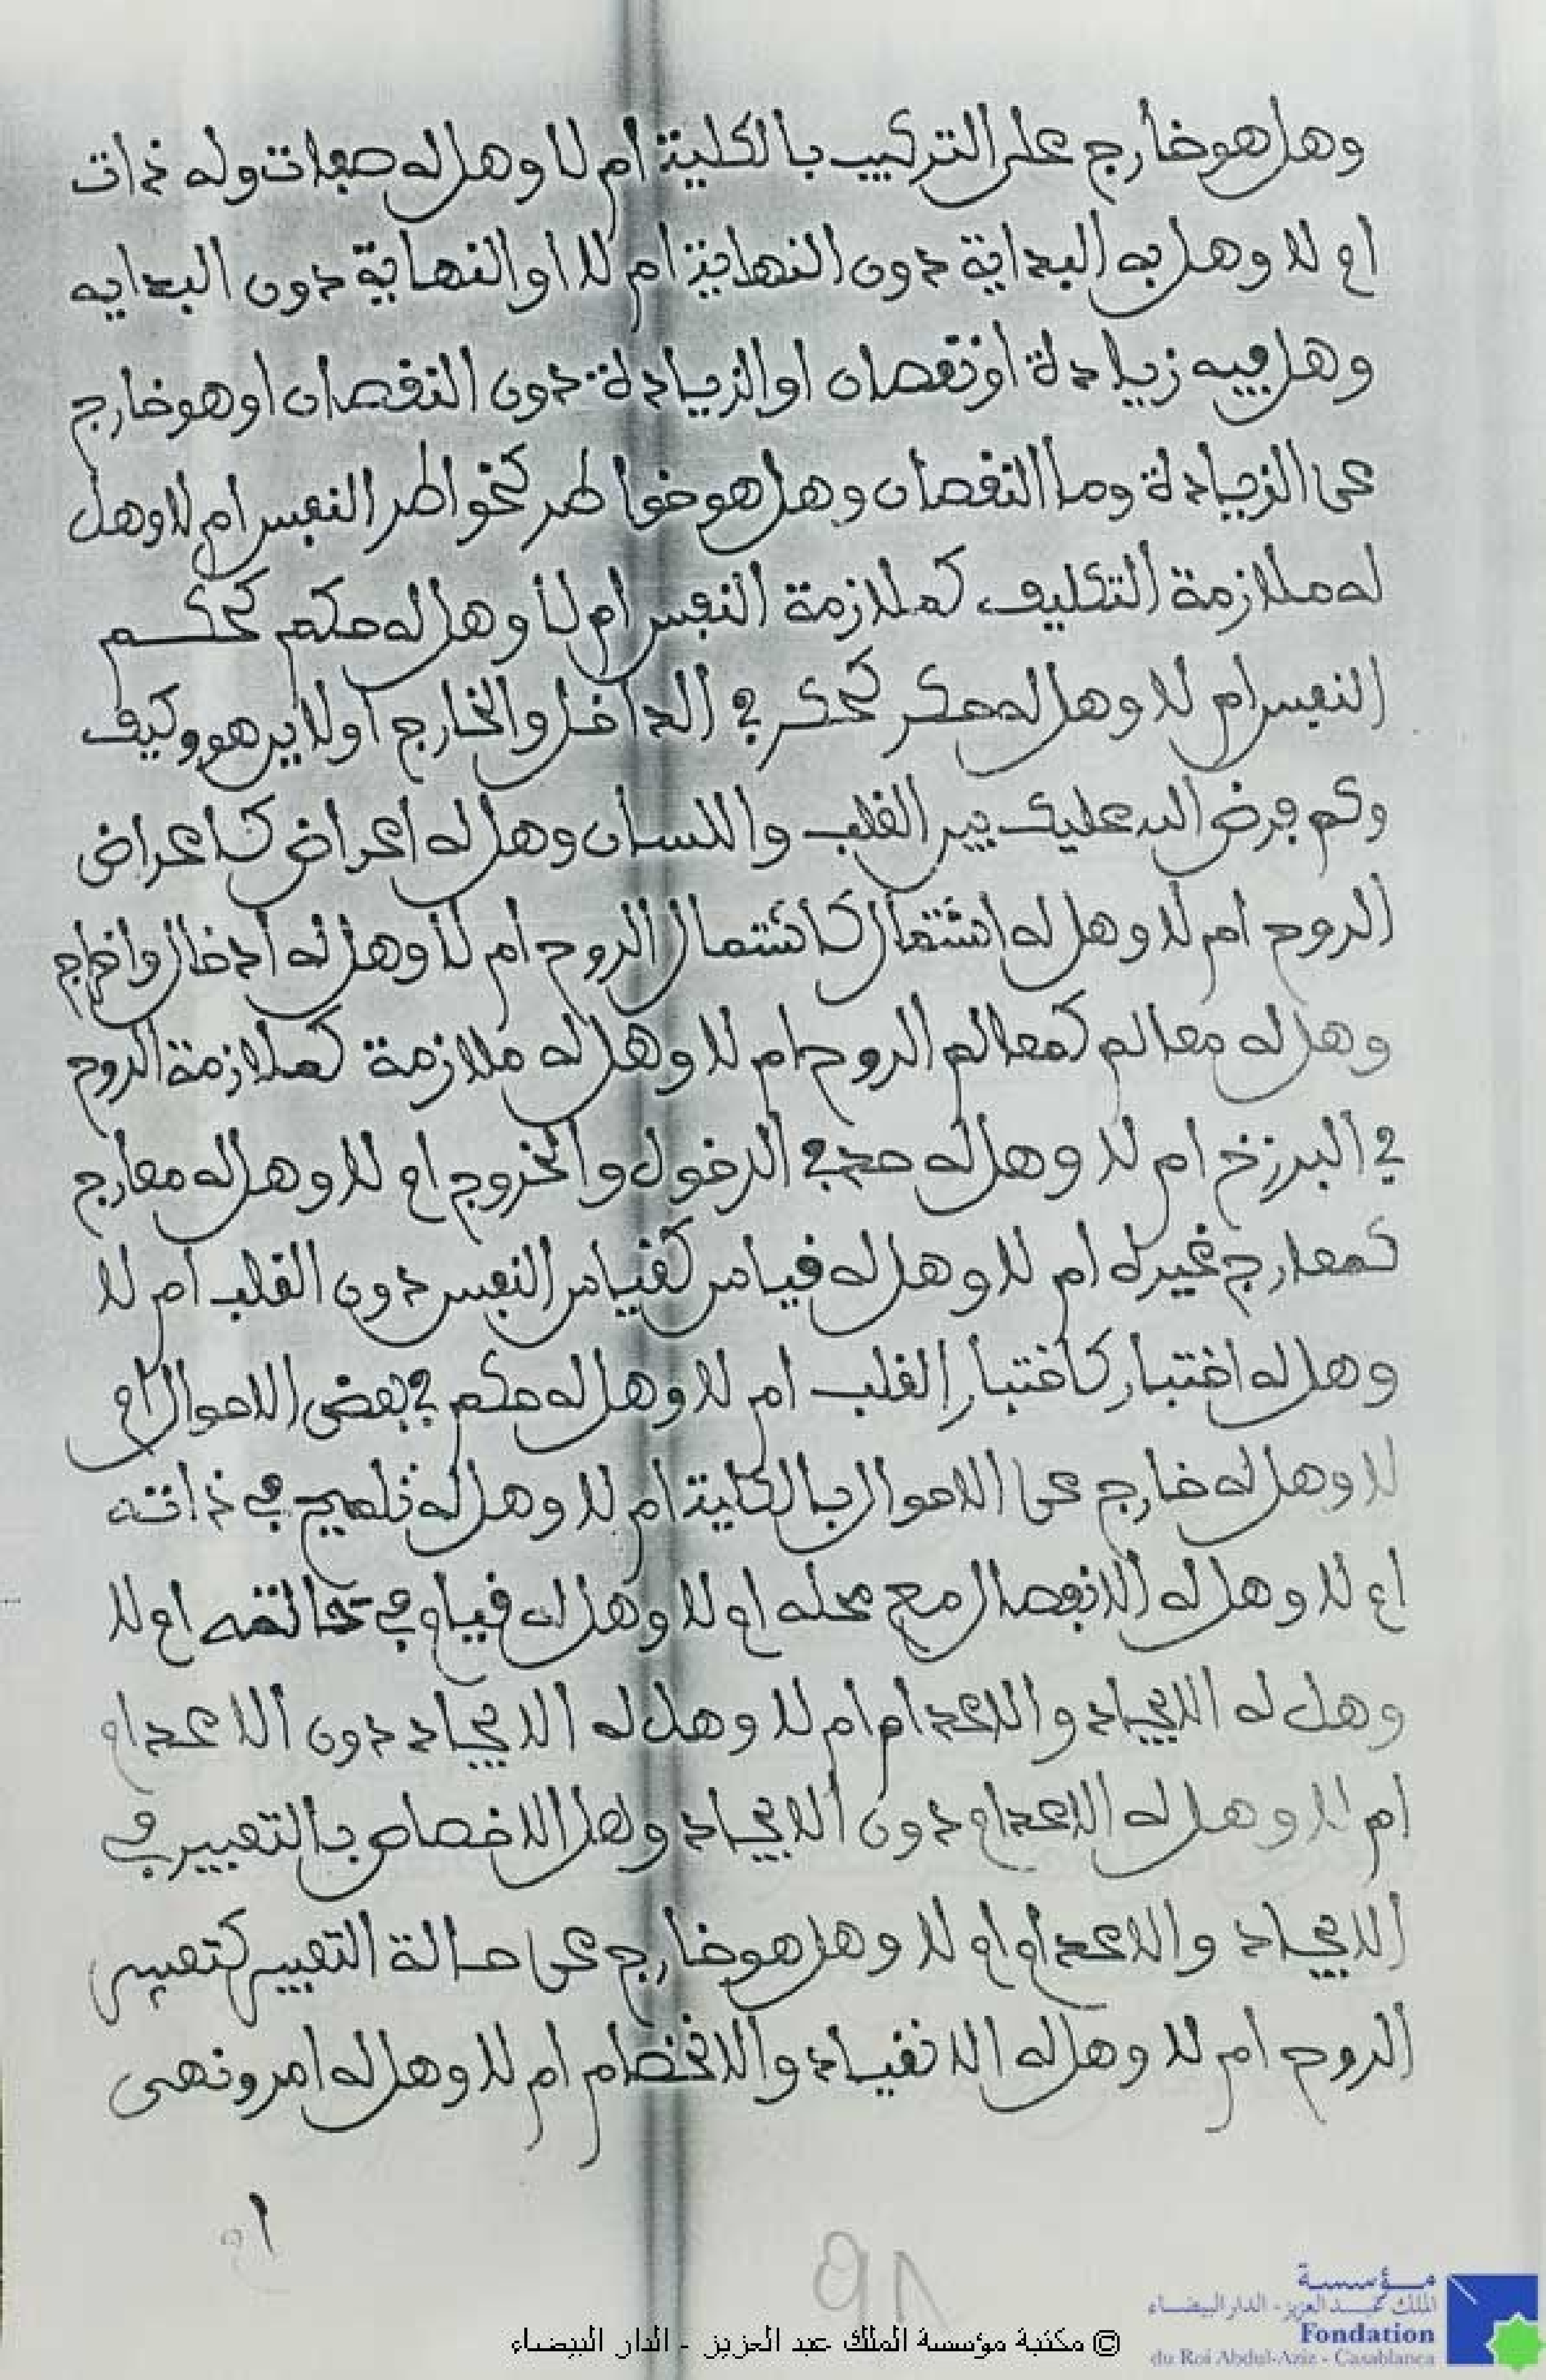 وهل هو خارج على التركيب بالكلية ام لا وهل له صفات وله ذات
ام لا وهل به البداية دون النهاية ام لا او النهاية دون البدايه
وهل فيه زيادة او نقصان او الزيادة دون النقصان او هو خارج
عن الزيادة وما النقصان وهل هو خواطر كخواطر النفس ام لا وهل
له ملازمة التكليف كملازمة النفس ام لا وهل له حكم كحكم
النفس ام لا وهل له فكر كفكر في الداخل والخارج او لا ير هو وكيف
وكم فرض الله عليك بين القلب واللسان وهل له اعراض كاعراض
الروح ام لا وهل له اشتمال كاشتمال الروح ام لا وهل له ادخال واخراج
وهل له معالم كمعالم الروح ام لا وهل له ملازمة كملازمة الروح
في البرزخ ام لا وهل له حد في الدخول والخروج ام لا وهل له معارج
كمعارج غيره ام لا وهل له قياس كقياس النفس دون القلب ام لا
وهل له اختبار كاختبار القلب ام لا وهل له حكم في بعض الاحوال ام
لا وهل له خارج عن الاحوال بالكلية ام لا وهل له تلميح في ذاته
ام لا وهل له الانفصال مع محله ام لا وهل له قيام في ام لا
وهل له الايجاد والاعدام ام لا وهل له الايجاد دون الاعدام
ام لا وهل له الاعدام دون الايجاد وهل الاخصاص بالتعبير في
الايجاد والاعدام ام لا وهل هو خارج عن حالة التعبير كتعبير
الروح ام لا وهل له الانقياد والانخضام ام لا وهل له امر ونهي
91
مؤسسة
الملك عبد العزيز - الدار البيضاء
Fondation
du Roi Abdul-Aziz - Casablanca
© مكتبة مؤسسة الملك عبد العزيز - الدار البيضاء